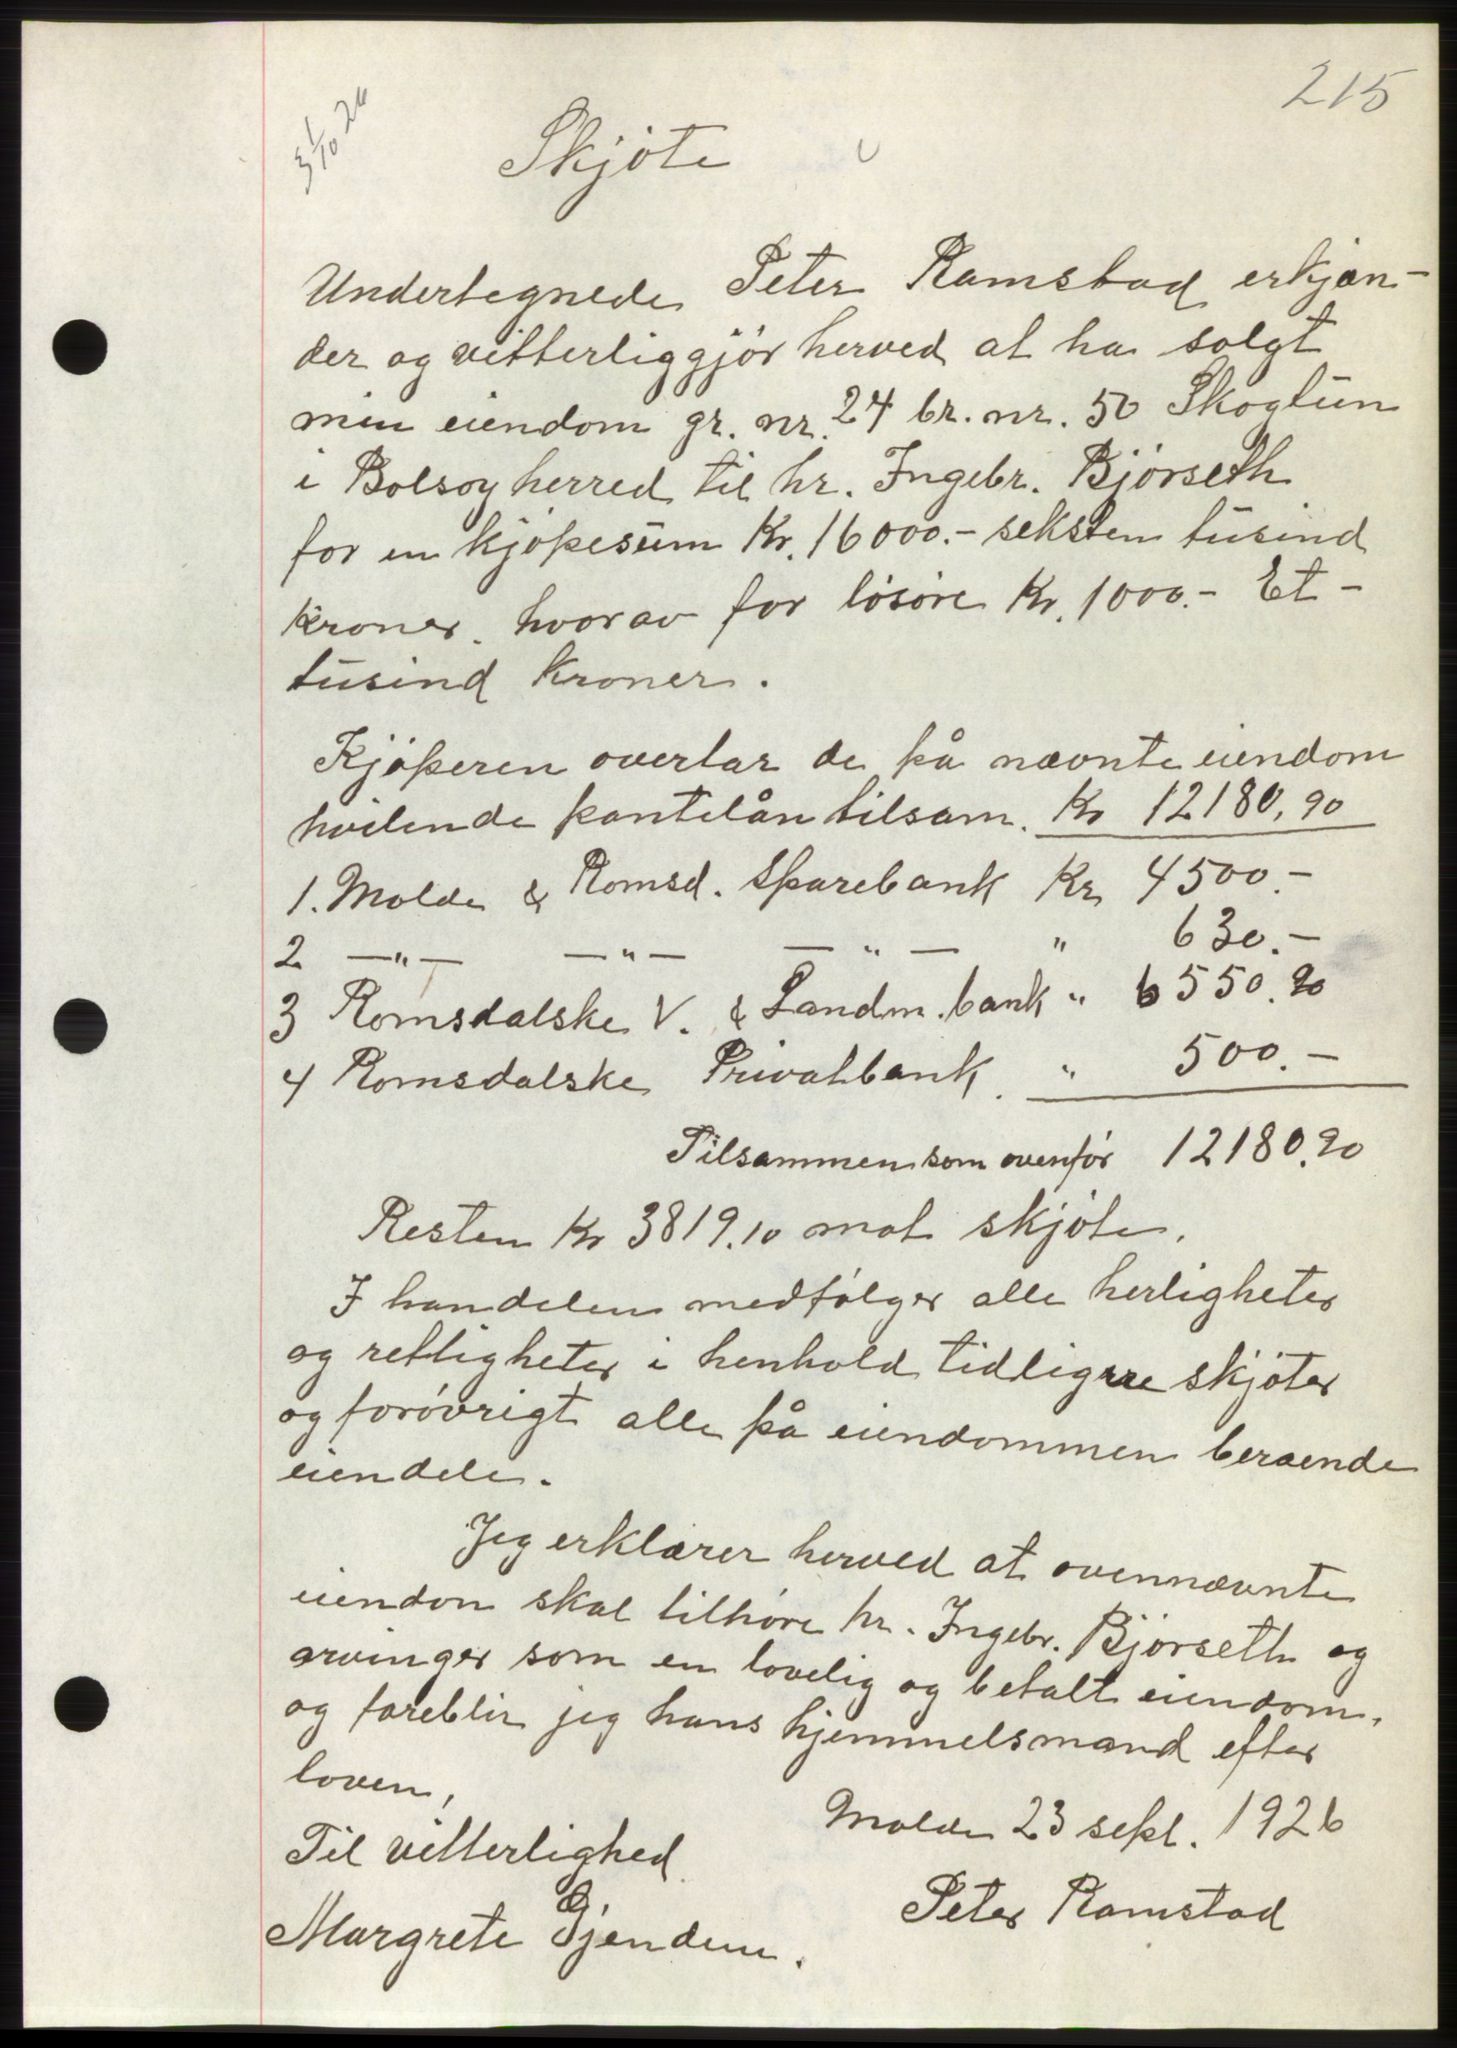 215
1/10 26
Skjöte
Undertegnede Peter Ramstad erkjæn-
der og vitterliggjör herved at ha solgt
min eiendom gr. nr. 24 br. nr. 50 Skogtun
i Bolsøy herred til hr. Ingebr. Björseth
for en kjöpesum Kr. 16000.- seksten tusind
kroner. hvorav for lösöre Kr. 1000.- Et-
tusind kroner.
Kjöperen overtar de på nævnte eiendom
hvilende pantelån tilsam. Kr 12180,90
1. Molde & Romsd. Sparebank Kr 4500.-
2 —"— —"— —"— " 630.-
3 Romsdalske V. & Landm.bank " 6550.90
4 Romsdalske Privatbank. " 500.-
Tilsammen som ovenfor 12180.90
Resten Kr 3819.10 mot skjöte.
I handelen medfölger alle herligheter
og rettigheter i henhold tidligere skjöter
og forövrigt alle på eiendommen beroende
eiendele.
Jeg erklærer herved at ovennævnte
eiendon skal tilhöre hr. Ingebr. Björseth og
arvinger som en lovelig og betalt eiendom,
og foreblir jeg hans hjemmelsmand efter
loven,
Molde 23 sept. 1926
Til vitterlighed
Peter Ramstad
Margrete Gjendem.